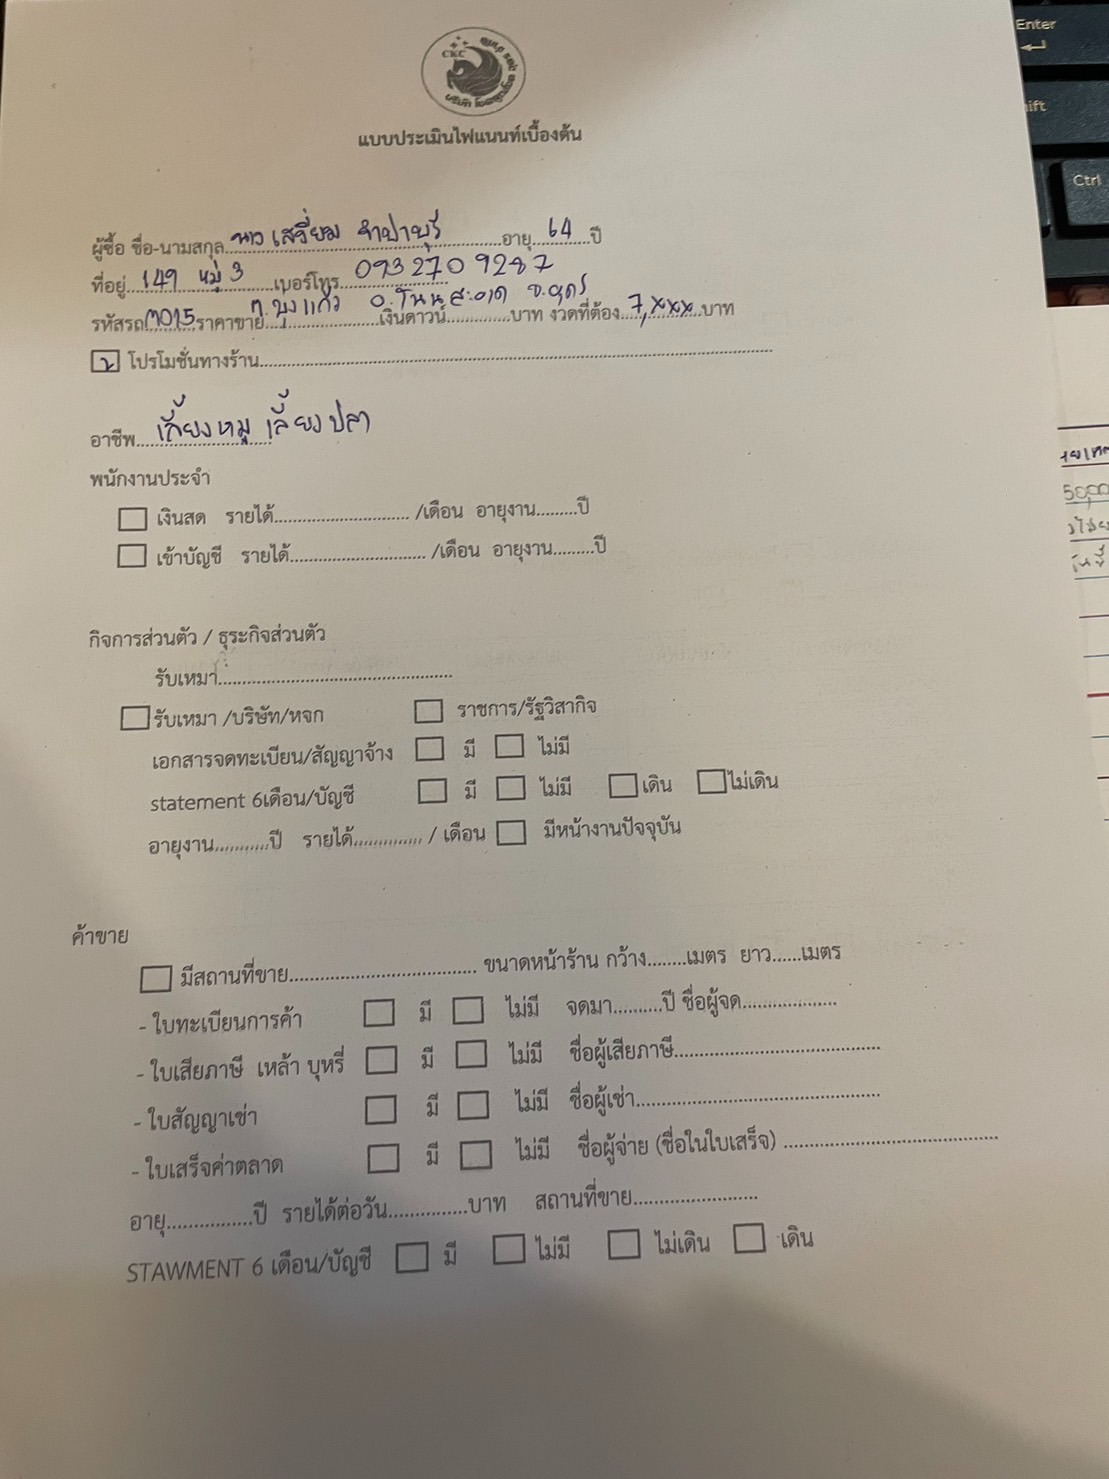 CKC
แบบประเมินไฟแนนท์เบื้องต้น
ผู้ซื้อ ชื่อ-นามสกุล นาง เสงี่ยม จำปาบุรี อายุ 64 ปี
ที่อยู่ 149 หมู่ 3 เบอร์โทร 093 270 9287
ต.บุงแก้ว อ.โนนสะอาด จ.อุดร
รหัสรถ M015 ราคาขาย เงินดาวน์ บาท งวดที่ต้อง 7,xxx บาท
โปรโมชั่นทางร้าน
อาชีพ เลี้ยงหมู เลี้ยงปลา
พนักงานประจำ
เงินสด รายได้ /เดือน อายุงาน ปี
เข้าบัญชี รายได้ /เดือน อายุงาน ปี
กิจการส่วนตัว / ธุระกิจส่วนตัว
รับเหมา
รับเหมา /บริษัท/หจก ราชการ/รัฐวิสากิจ
เอกสารจดทะเบียน/สัญญาจ้าง มี ไม่มี
statement 6เดือน/บัญชี มี ไม่มี เดิน ไม่เดิน
อายุงาน ปี รายได้ / เดือน มีหน้างานปัจจุบัน
ค้าขาย
มีสถานที่ขาย ขนาดหน้าร้าน กว้าง เมตร ยาว เมตร
- ใบทะเบียนการค้า มี ไม่มี จดมา ปี ชื่อผู้จด
- ใบเสียภาษี เหล้า บุหรี่ มี ไม่มี ชื่อผู้เสียภาษี
- ใบสัญญาเช่า มี ไม่มี ชื่อผู้เช่า
- ใบเสร็จค่าตลาด มี ไม่มี ชื่อผู้จ่าย (ชื่อในใบเสร็จ)
อายุ ปี รายได้ต่อวัน บาท สถานที่ขาย
STAWMENT 6 เดือน/บัญชี มี ไม่มี ไม่เดิน เดิน
Enter
Ctrl